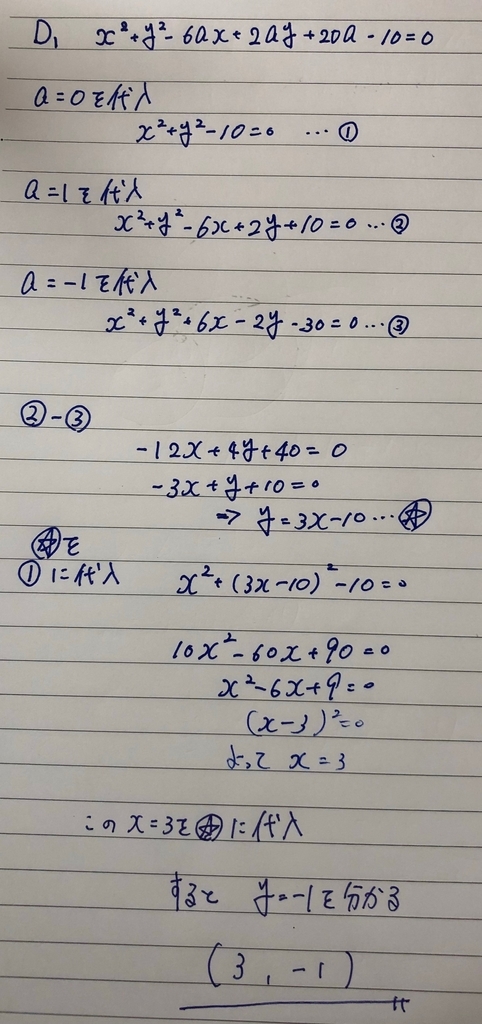 D, x²+y²-6ax+2ay+20a-10=0
a=0を代入
x²+y²-10=0 …①
a=1を代入
x²+y²-6x+2y+10=0…②
a=-1を代入
x²+y²+6x-2y-30=0…③
②-③
-12x+4y+40=0
-3x+y+10=0
⇒ y=3x-10…☆
☆を
①に代入 x²+(3x-10)²-10=0
10x²-60x+90=0
x²-6x+9=0
(x-3)²=0
よって x=3
この x=3を☆に代入
すると y=-1を分かる
(3, -1)